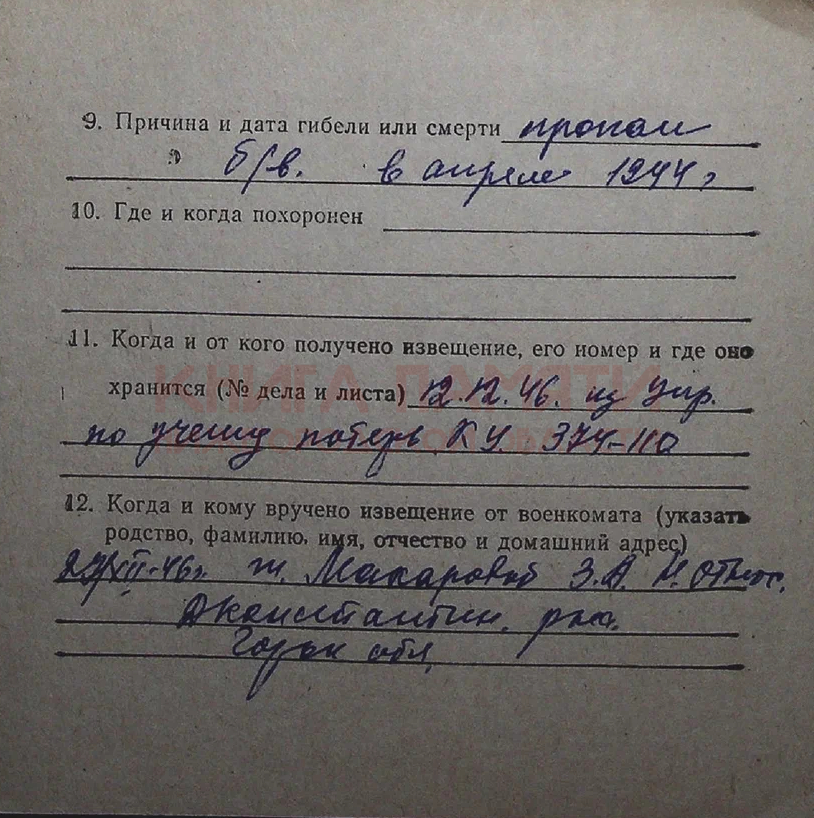 9. Причина и дата гибели или смерти пропал
б/в. в апреле 1944 г
10. Где и когда похоронен
11. Когда и от кого получено извещение, его номер и где оно
хранится (№ дела и листа) 12.12.46. из Упр.
по учету потерь К У. 374-110
12. Когда и кому вручено извещение от военкомата (указать
родство, фамилию, имя, отчество и домашний адрес)
XII-46г. ж. Макаровой З.А.
Дконстантин. рай.
Горьк обл,
КНИГА ПАМЯТИ